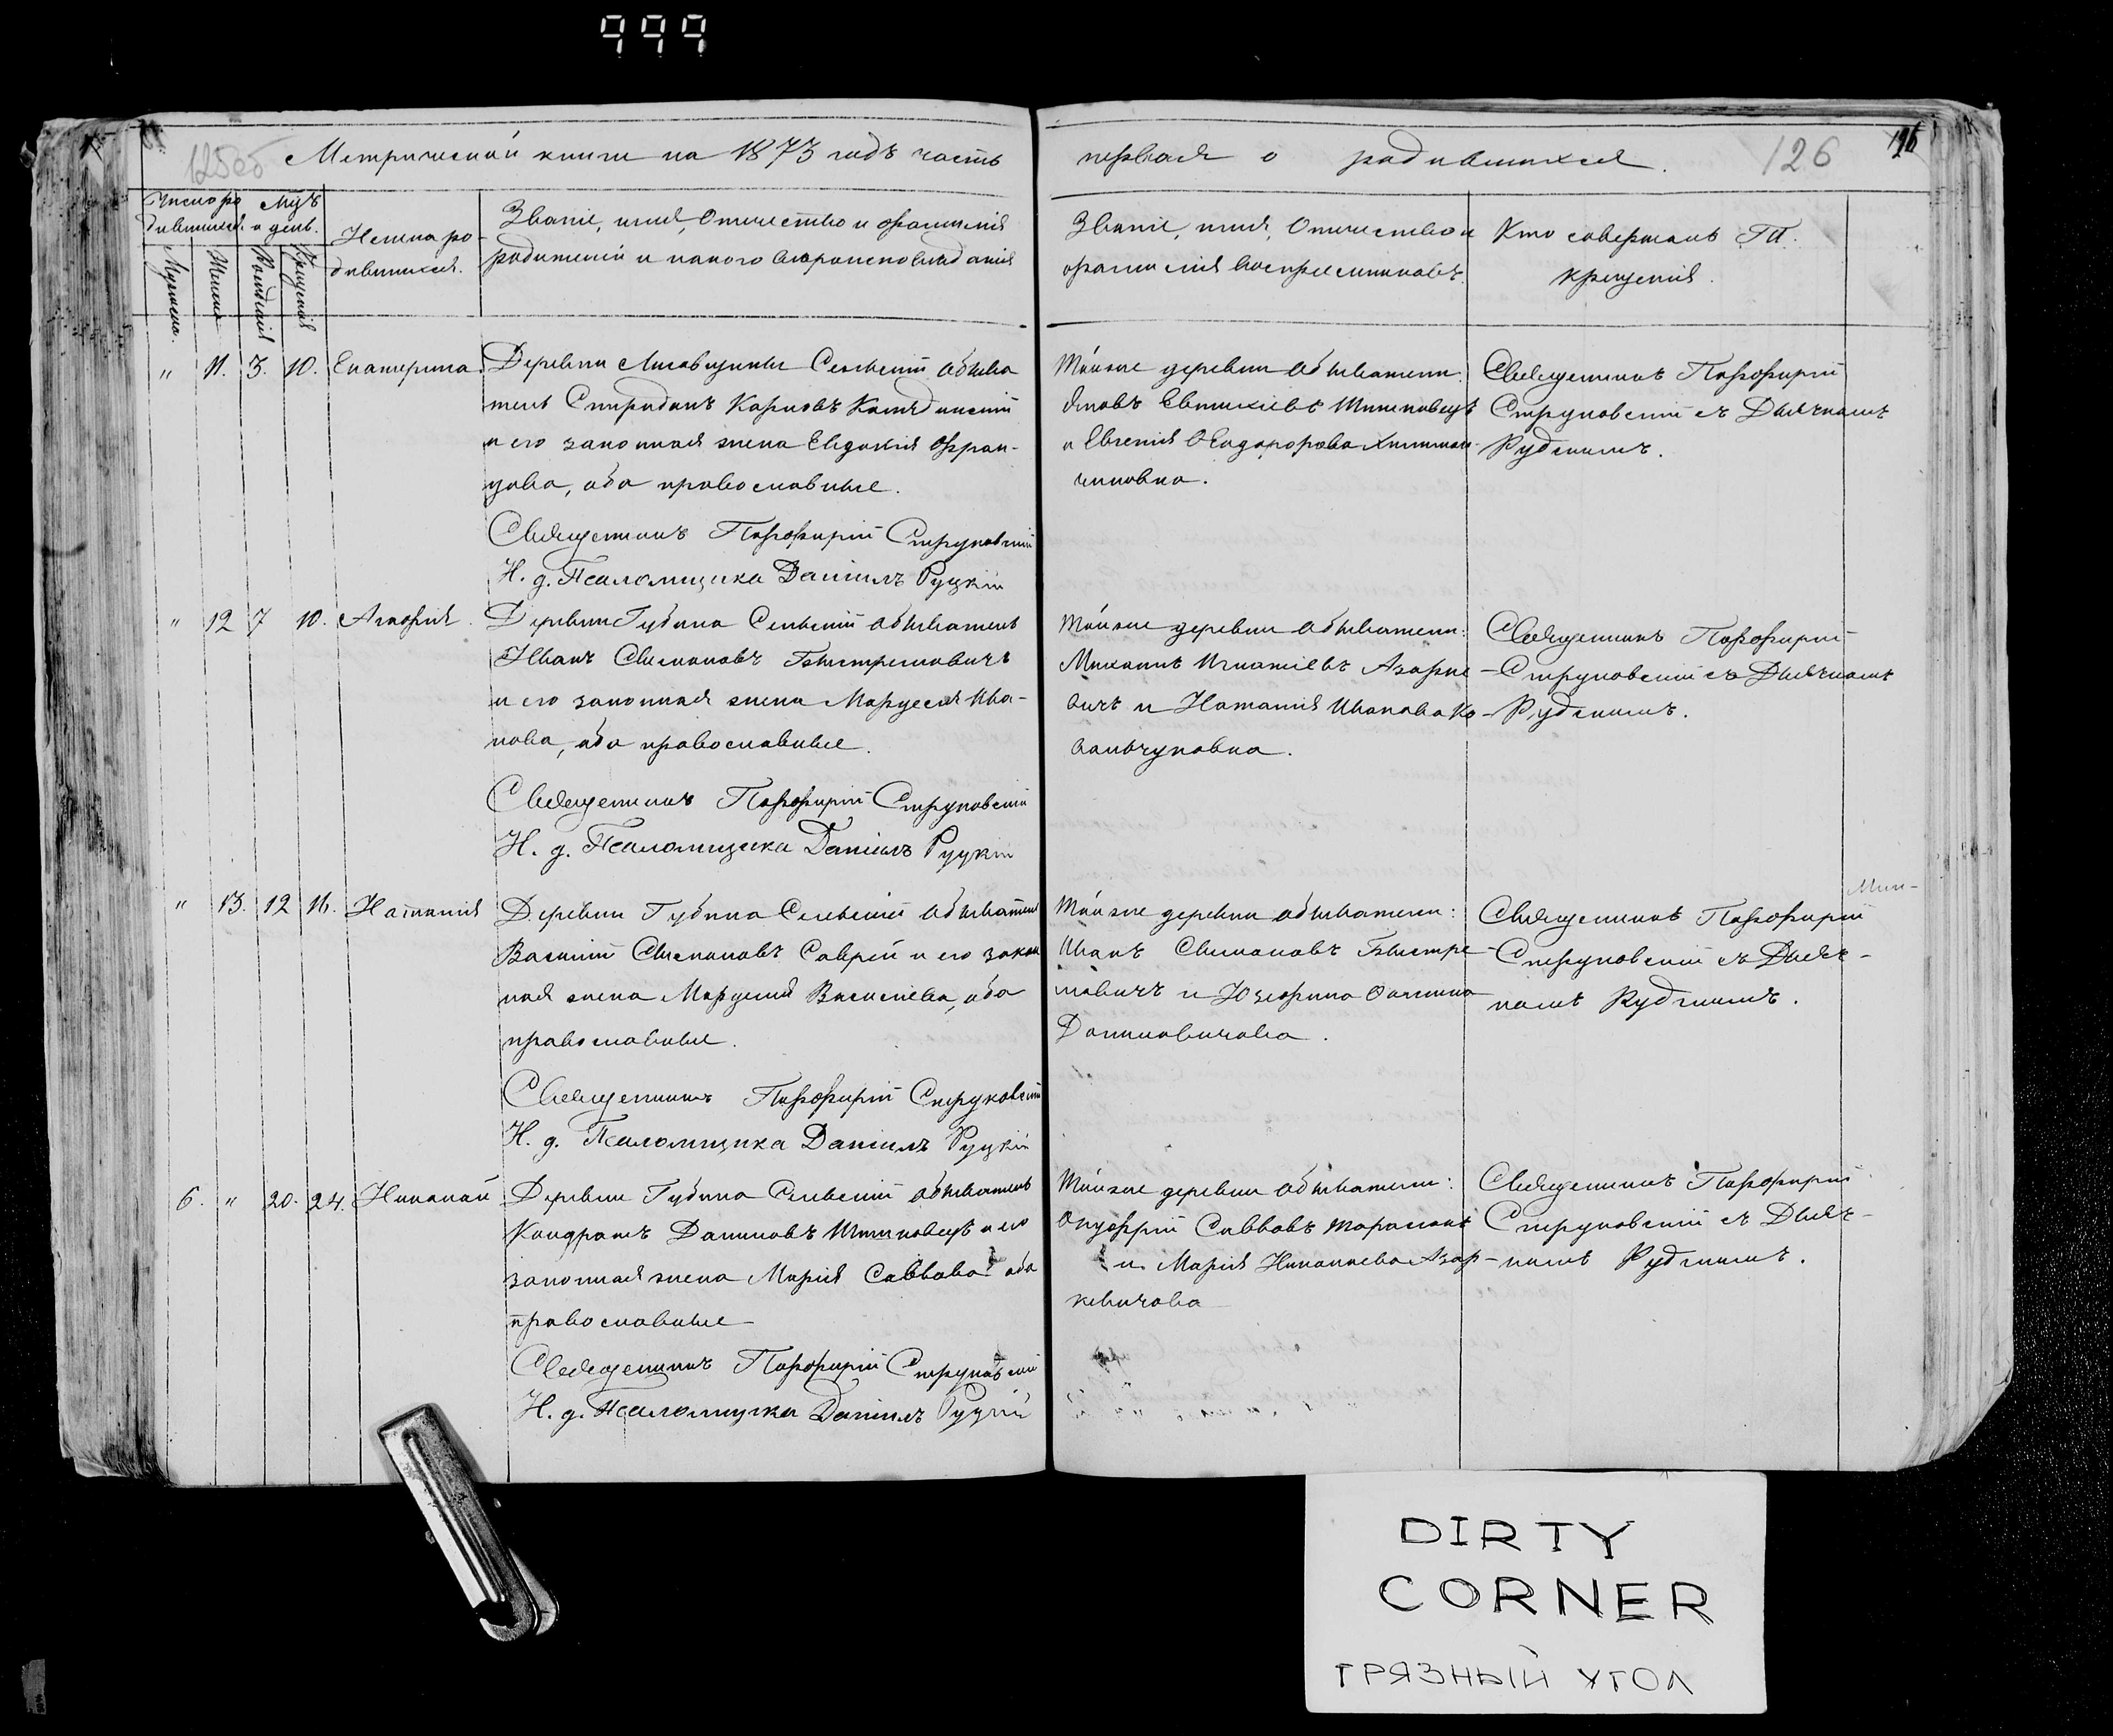 999
125об Метрической книги на 1873 годъ часть
первая о родившихся. 126 126
Число ро
дившихся
Мцъ
и день.
Мужеска.
Женска
Рожденія
Крещенія
Имена ро-
дившихся.
Званіе, имя, Отчество и фамилія
родителей и какого вѣроисповѣданія
Званіе, имя, Отчество и
фамилія воспріемниковъ.
Кто совершалъ Т.
крещенія.
" 11. 3. 10. Екатерина
Деревни Лисовщины Сельскій обыва
тель Спиридонъ Карповъ
и его законная жена Евдокія Фран-
цова, оба православные.
Священникъ Порфирій Струковскій
И. д. Псаломщика Даніилъ Руцкій
Той же деревни обыватели:
Яковъ Евтихіевъ
и Евгенія Ѳеодорова
Священникъ Порфирій
Струковскій съ Дьячкомъ
Рудскимъ.
" 12 7 10. Агафія
Деревни Губина Сельскій обыватель
Иванъ Симоновъ Быстремовичъ
и его законная жена Маруся Ива-
нова, оба православные.
Священникъ Порфирій Струковскій
И. д. Псаломщика Даніилъ Руцкій
Той же деревни обыватели:
Михаилъ Игнатіевъ Азарке
вичъ и Наталія Иванова Ко
вальчуковна.
Священникъ Порфирій
Струковскій съ Дьячкомъ
Рудскимъ.
" 13. 12 16. Наталія
Деревни Губина Сельскій обыватель
Василій Симоновъ Саврей и его закон
ная жена Василіева, оба
православные.
Священникъ Порфирій Струковскій
И. д. Псаломщика Даніилъ Руцкій
Той же деревни обыватели:
Иванъ Симоновъ Быстре
мовичъ и Юзефина Фомина
Даниловичова.
Священникъ Порфирій
Струковскій съ Дьяч-
комъ Рудскимъ.
6. " 20. 24. Николай
Деревни Губина Сельскій обыватель
Кондратъ Даниловъ и его
законная жена Марія Саввова оба
православные
Священникъ Порфирій Струковскій
И. д. Псаломщика Даніилъ Руцкій
Той же деревни обыватели:
Онуфрій Саввовъ
и Марія Николаева Азар-
кевичова
Священникъ Порфирій
Струковскій съ Дьяч-
комъ Рудскимъ.
DIRTY
CORNER
ГРЯЗНЫЙ УГОЛ